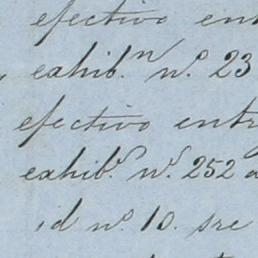 efectivo ent
exhib.n n.º 23
efectivo entr
exhib.n n.º 252 a
id n.º 10. sre